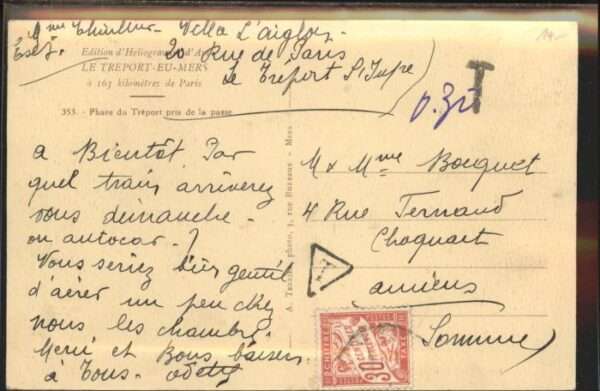 Mme Villa L'aiglon.
Exp. 20 Rue de Paris
Le Tréport S/Infre
Edition d'Heliogravure d'Art
LE TREPORT-EU-MERS
à 167 kilomètres de Paris
353. - Phare du Tréport pris de la passe
a Bientôt Par
quel train arriverez
vous dimanche.
ou autocar. ?
Vous seriez bien gentil
d'aérer un peu chez
nous les chambres.
Merci et Bons baisers
à Tous. Odette
A. photo, 3, rue Bureaux - Mers
T
0.30
M & Mme Bouquet
4 Rue Fernand
Choquart
T
amiens
Somme
CHIFFRE
TAXE
30